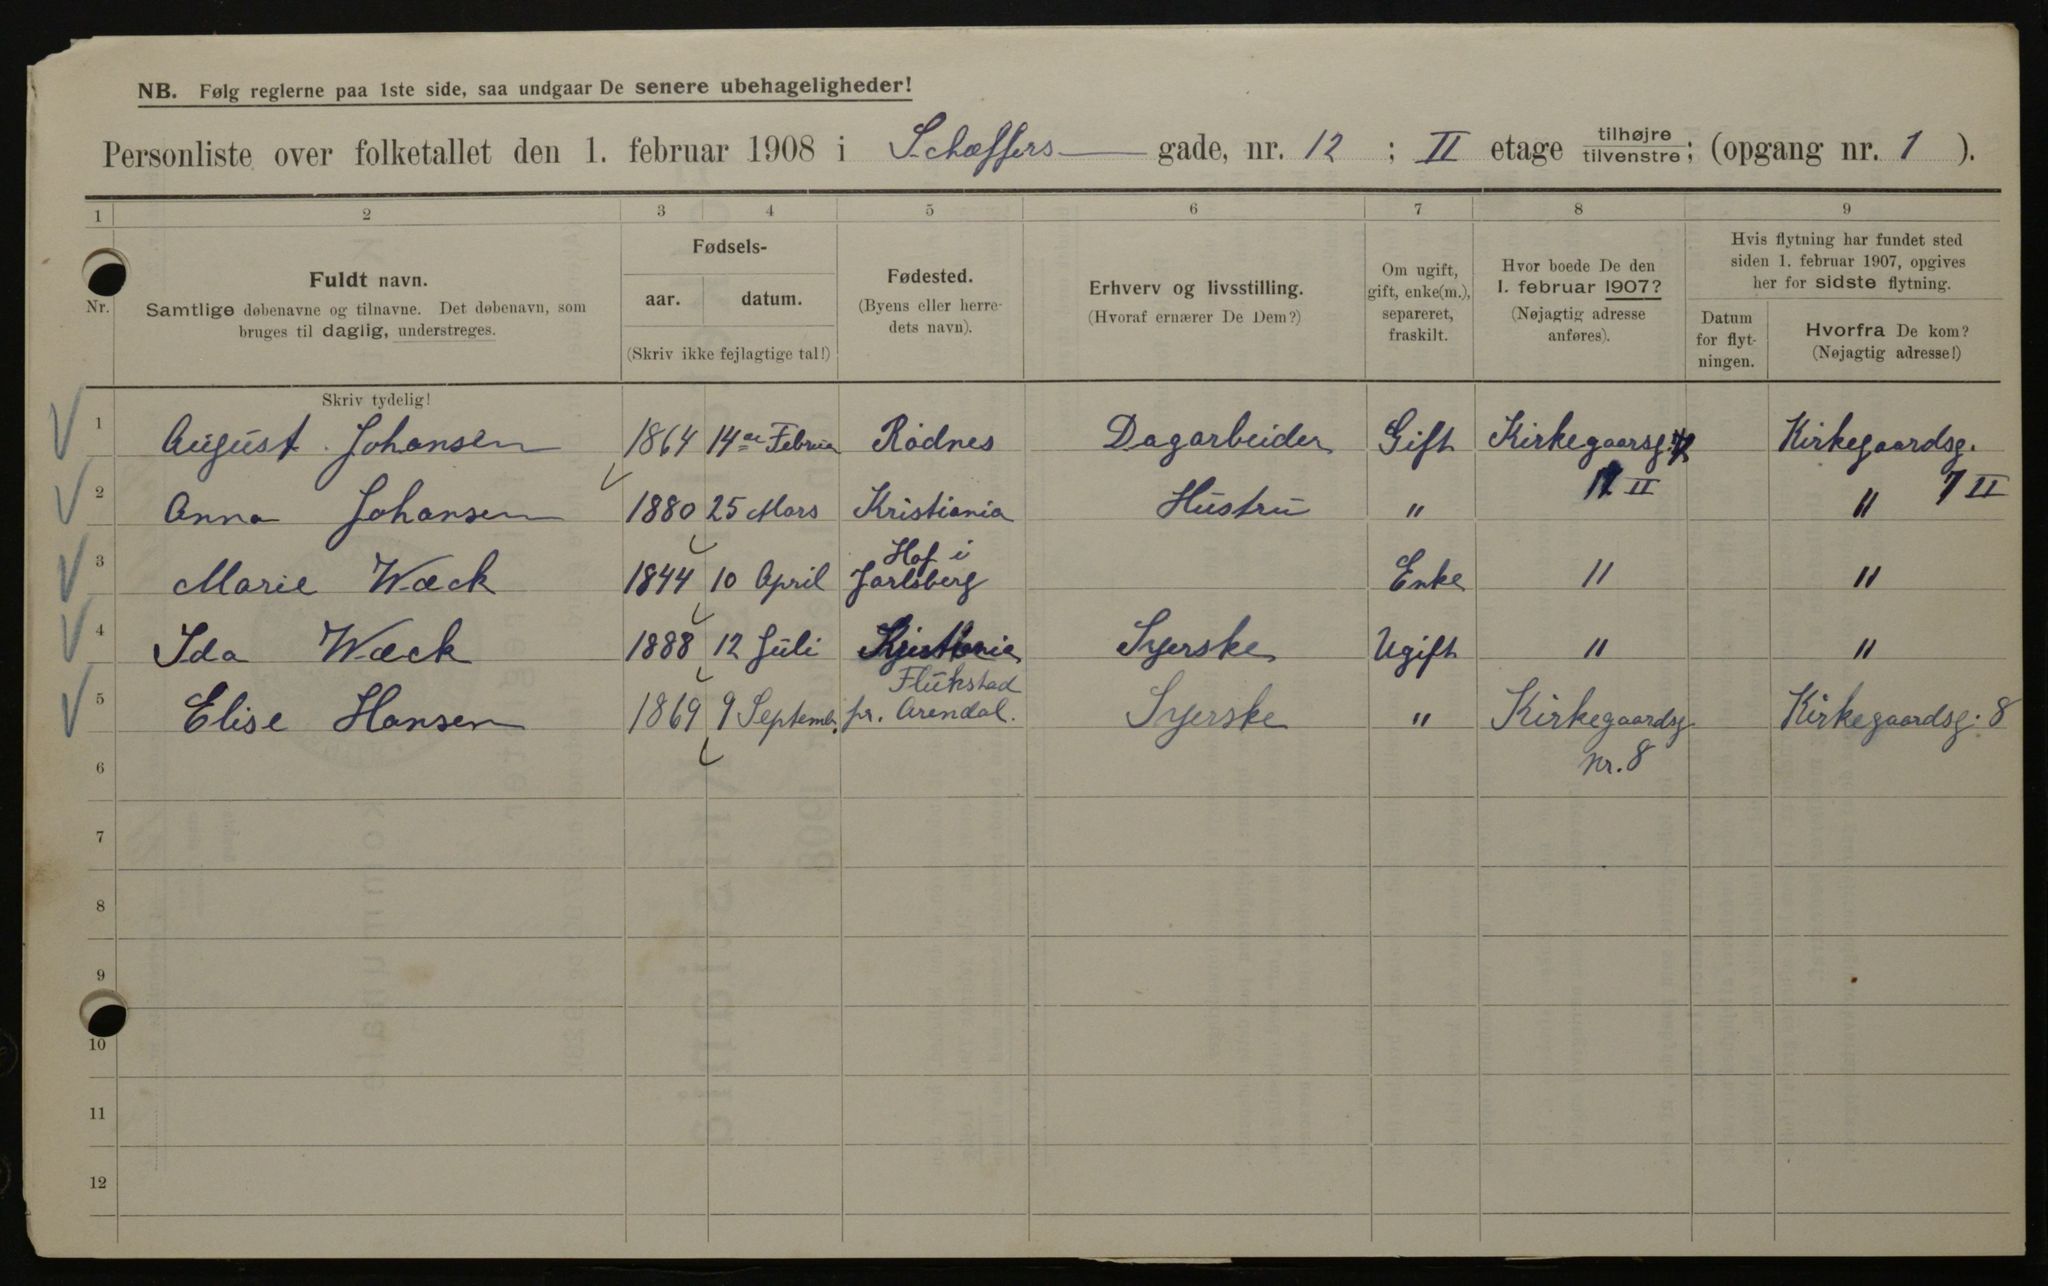 NB. Følg reglerne paa 1ste side, saa undgaar De senere ubehageligheder!
Personliste over folketallet den 1. februar 1908 i Schæffers gade, nr. 12 ; II etage tilhøjre/tilvenstre; (opgang nr. 1 ).
1 2 3 4 5 6 7 8 9
Nr.
Fuldt navn.
Samtlige døbenavne og tilnavne. Det døbenavn, som
bruges til daglig, understreges.
Skriv tydelig!
Fødsels-
aar. datum.
(Skriv ikke fejlagtige tal!)
Fødested.
(Byens eller herre-
dets navn).
Erhverv og livsstilling.
(Hvoraf ernærer De Dem?)
Om ugift,
gift, enke(m.),
separeret,
fraskilt.
Hvor boede De den
1. februar 1907?
(Nøjagtig adresse
anføres).
Hvis flytning har fundet sted
siden 1. februar 1907, opgives
her for sidste flytning.
Datum
for flyt-
ningen.
Hvorfra De kom?
(Nøjagtig adresse!)
1 August Johansen 1864 14de Februa Rödnes Dagarbeider Gift Kirkegaarsg. Kirkegaardsg.
II 7 II
2 Anna Johansen 1880 25 Mars Kristiania Hustru " "
3 Marie Wæck 1844 10 April Hof i
Jarlsberg Enke " "
4 Ida Wæck 1888 12 Juli Kristiania Syerske Ugift " "
5 Elise Hansen 1869 9 Septemb. Flukstad
pr. Arendal. Syerske " Kirkegaardsg. Kirkegaardsg. 8
nr. 8
6
7
8
9
10
11
12